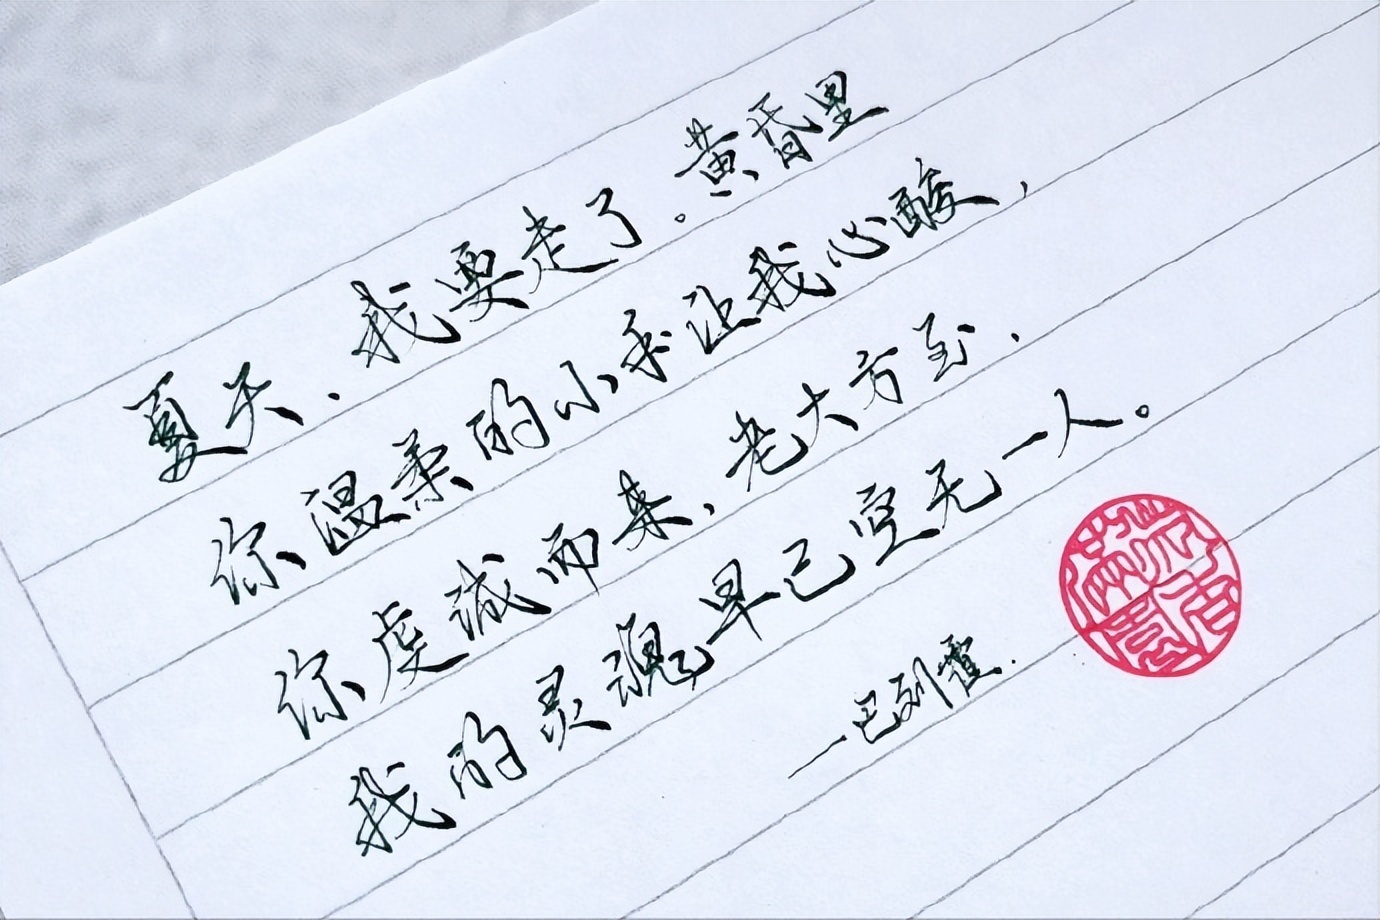 夏天，我要走了。黄昏里
你温柔的小手让我心酸，
你虔诚而来，老大方至，
我的灵魂早已空无一人。
—巴列霍.